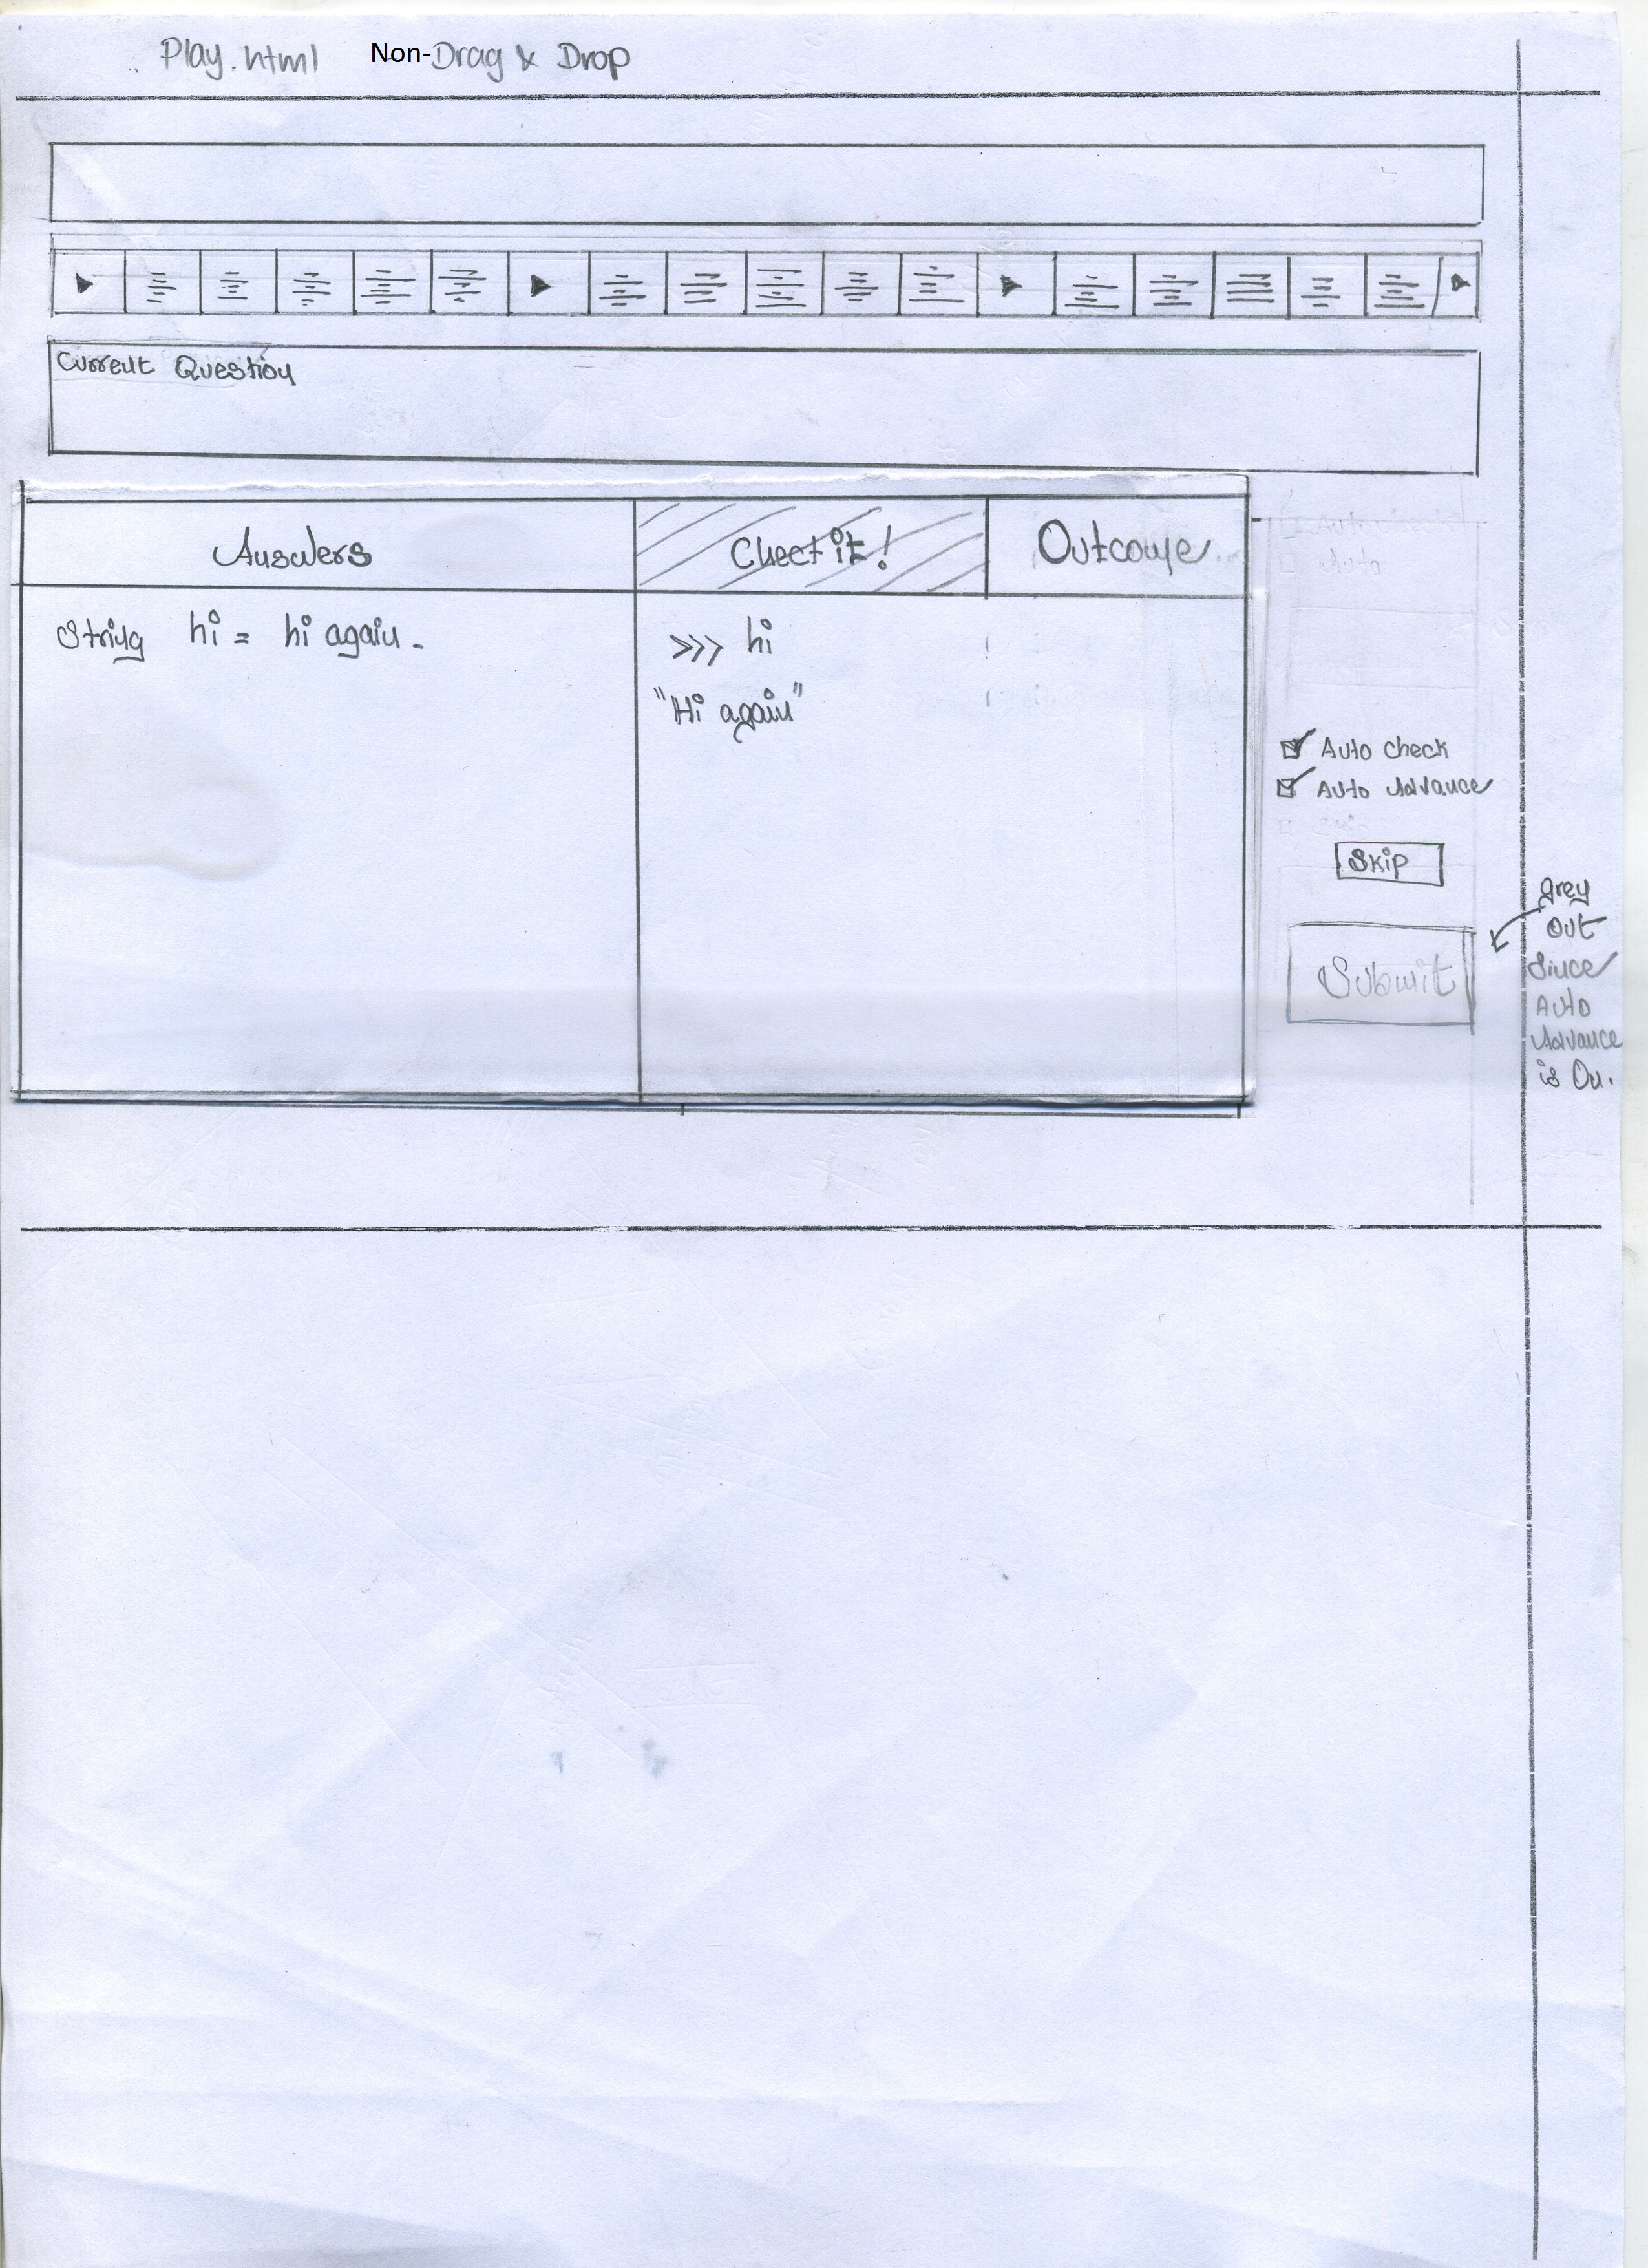 Play.html Non-Drag & Drop
Current Question
Answers
Check it!
Outcome
String hi = hi again.
>>> hi
"Hi again"
Auto check
Auto Advance
Skip
Submit
grey
out
Since
Auto
Advance
is On.